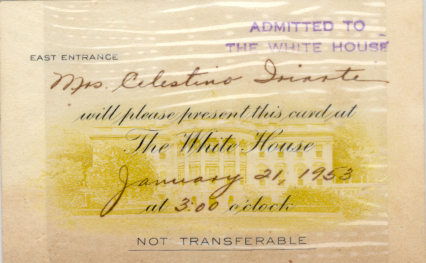 ADMITTED TO
THE WHITE HOUSE
EAST ENTRANCE
Mrs. Celestino Iriarte
will please present this card at
The White House
January 21, 1953
at 3:00 o'clock
NOT TRANSFERABLE